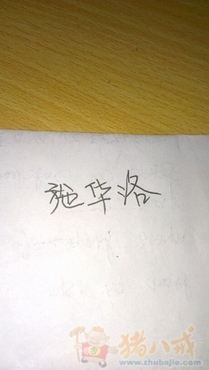 施华洛
猪八戒
www.zhubajie.com